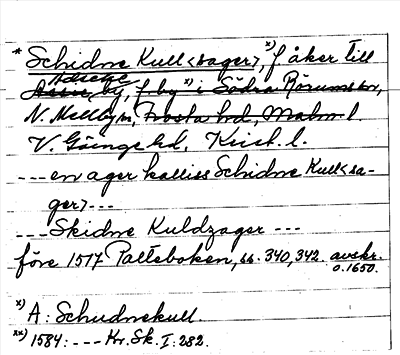 * Schidne Kull<sager>, x) f åker till
Adsetze
by, f. by x) i Södra Rörums sn,
N. Mellby sn, Frosta hd, Malm. l.
V. Göinge hd, Krist. l.
--- en ager kalliss Schidne Kull<sa-
ger> ---
--- Skidne Kuldzager ---
före 1517 Palteboken, ss. 340, 342. avskr.
o. 1650.
x) A: Schudnekull.
xx) 1584: --- Kr. Sk. I: 282.